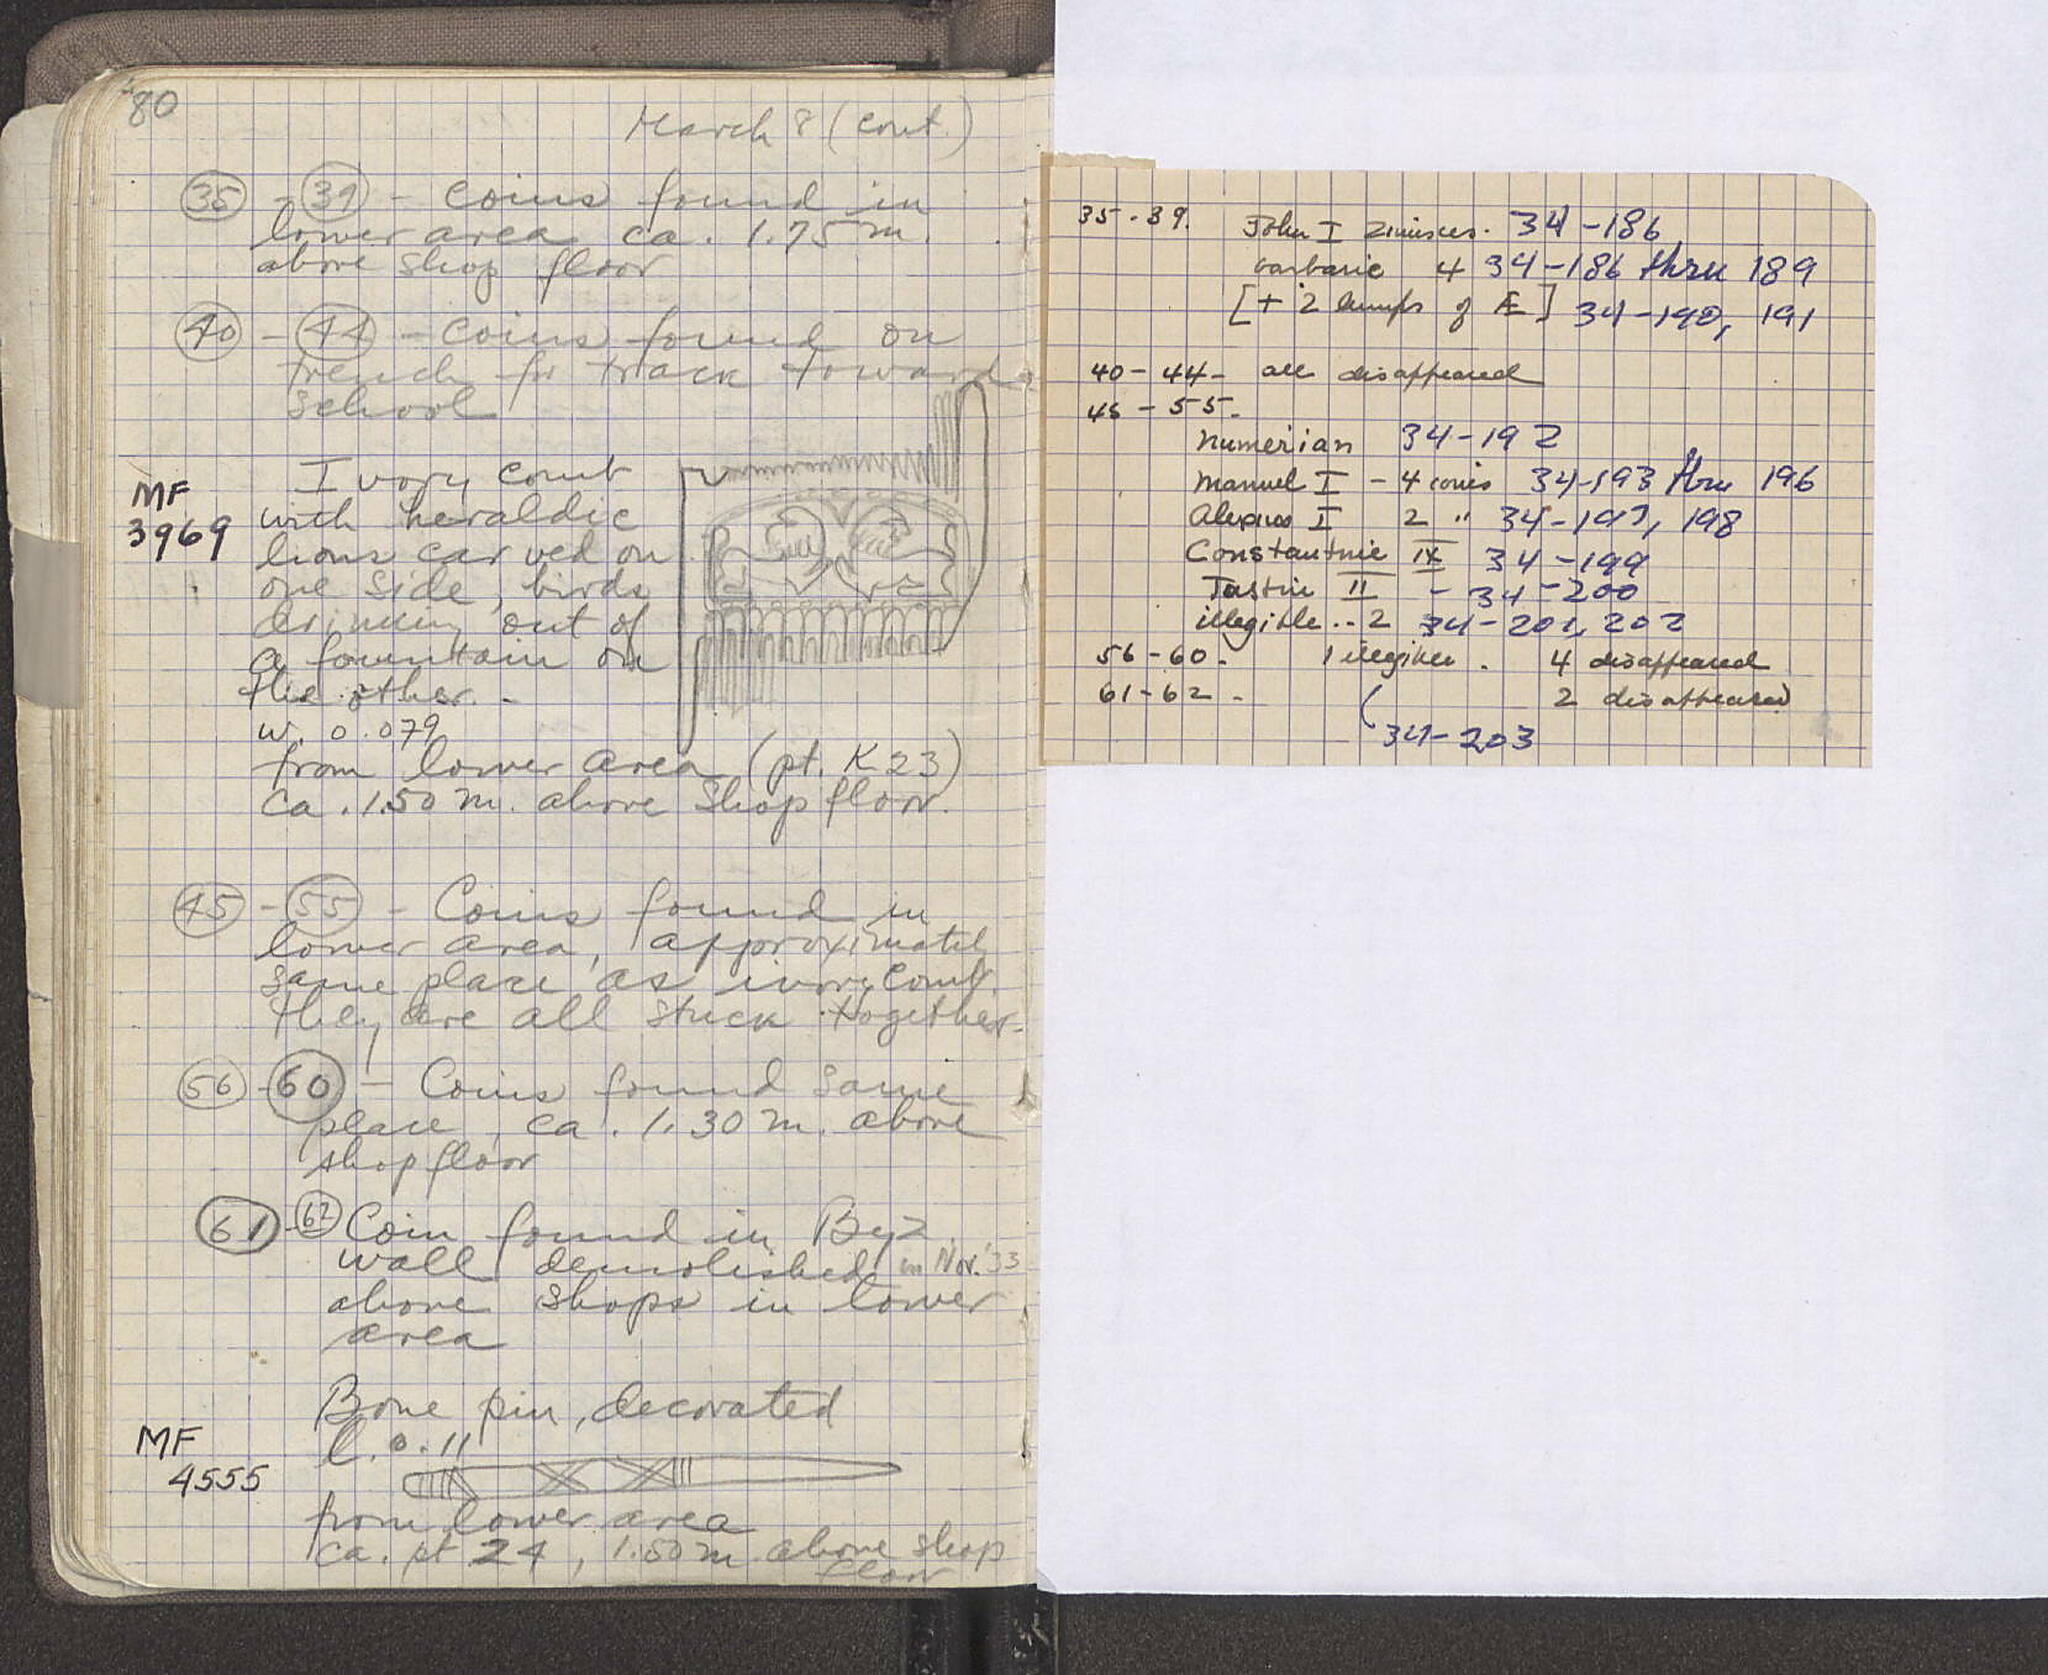 80
March 8 (cont.)
35 - 39 - coins found in
lower area ca. 1.75 m.
above shop floor
40 - 44 - coins found on
trench for track toward
school
MF
3969
Ivory comb
with heraldic
lions carved on
one side, birds
drinking out of
a fountain on
the other. -
w. 0.079
from lower area (pt. K 23)
ca. 1.50 m. above shop floor.
45 - 55 - Coins found in
lower area, approximately
same place as ivory comb.
they are all stuck together.
56 - 60 - Coins found same
place, ca. 1.30 m. above
shop floor
61 - 62 Coin found in Byz
wall demolished in Nov. '33
above shops in lower
area
MF
4555
Bone pin, decorated
l. 0.11
from lower area
ca. pt 24, 1.50 m above shop
floor
35-39. John I Zimisces. 34-186
barbaric 4 34-186 thru 189
[+ 2 lumps of Æ] 34-190, 191
40-44- all disappeared
45-55-
Numerian 34-192
Manuel I - 4 coins 34-193 thru 196
Alexius I 2 " 34-197, 198
Constantine IX 34-199
Justin II - 34-200
illegible .. 2 34-201, 202
56-60- 1 illegible. 4 disappeared
61-62- 2 disappeared
34-203